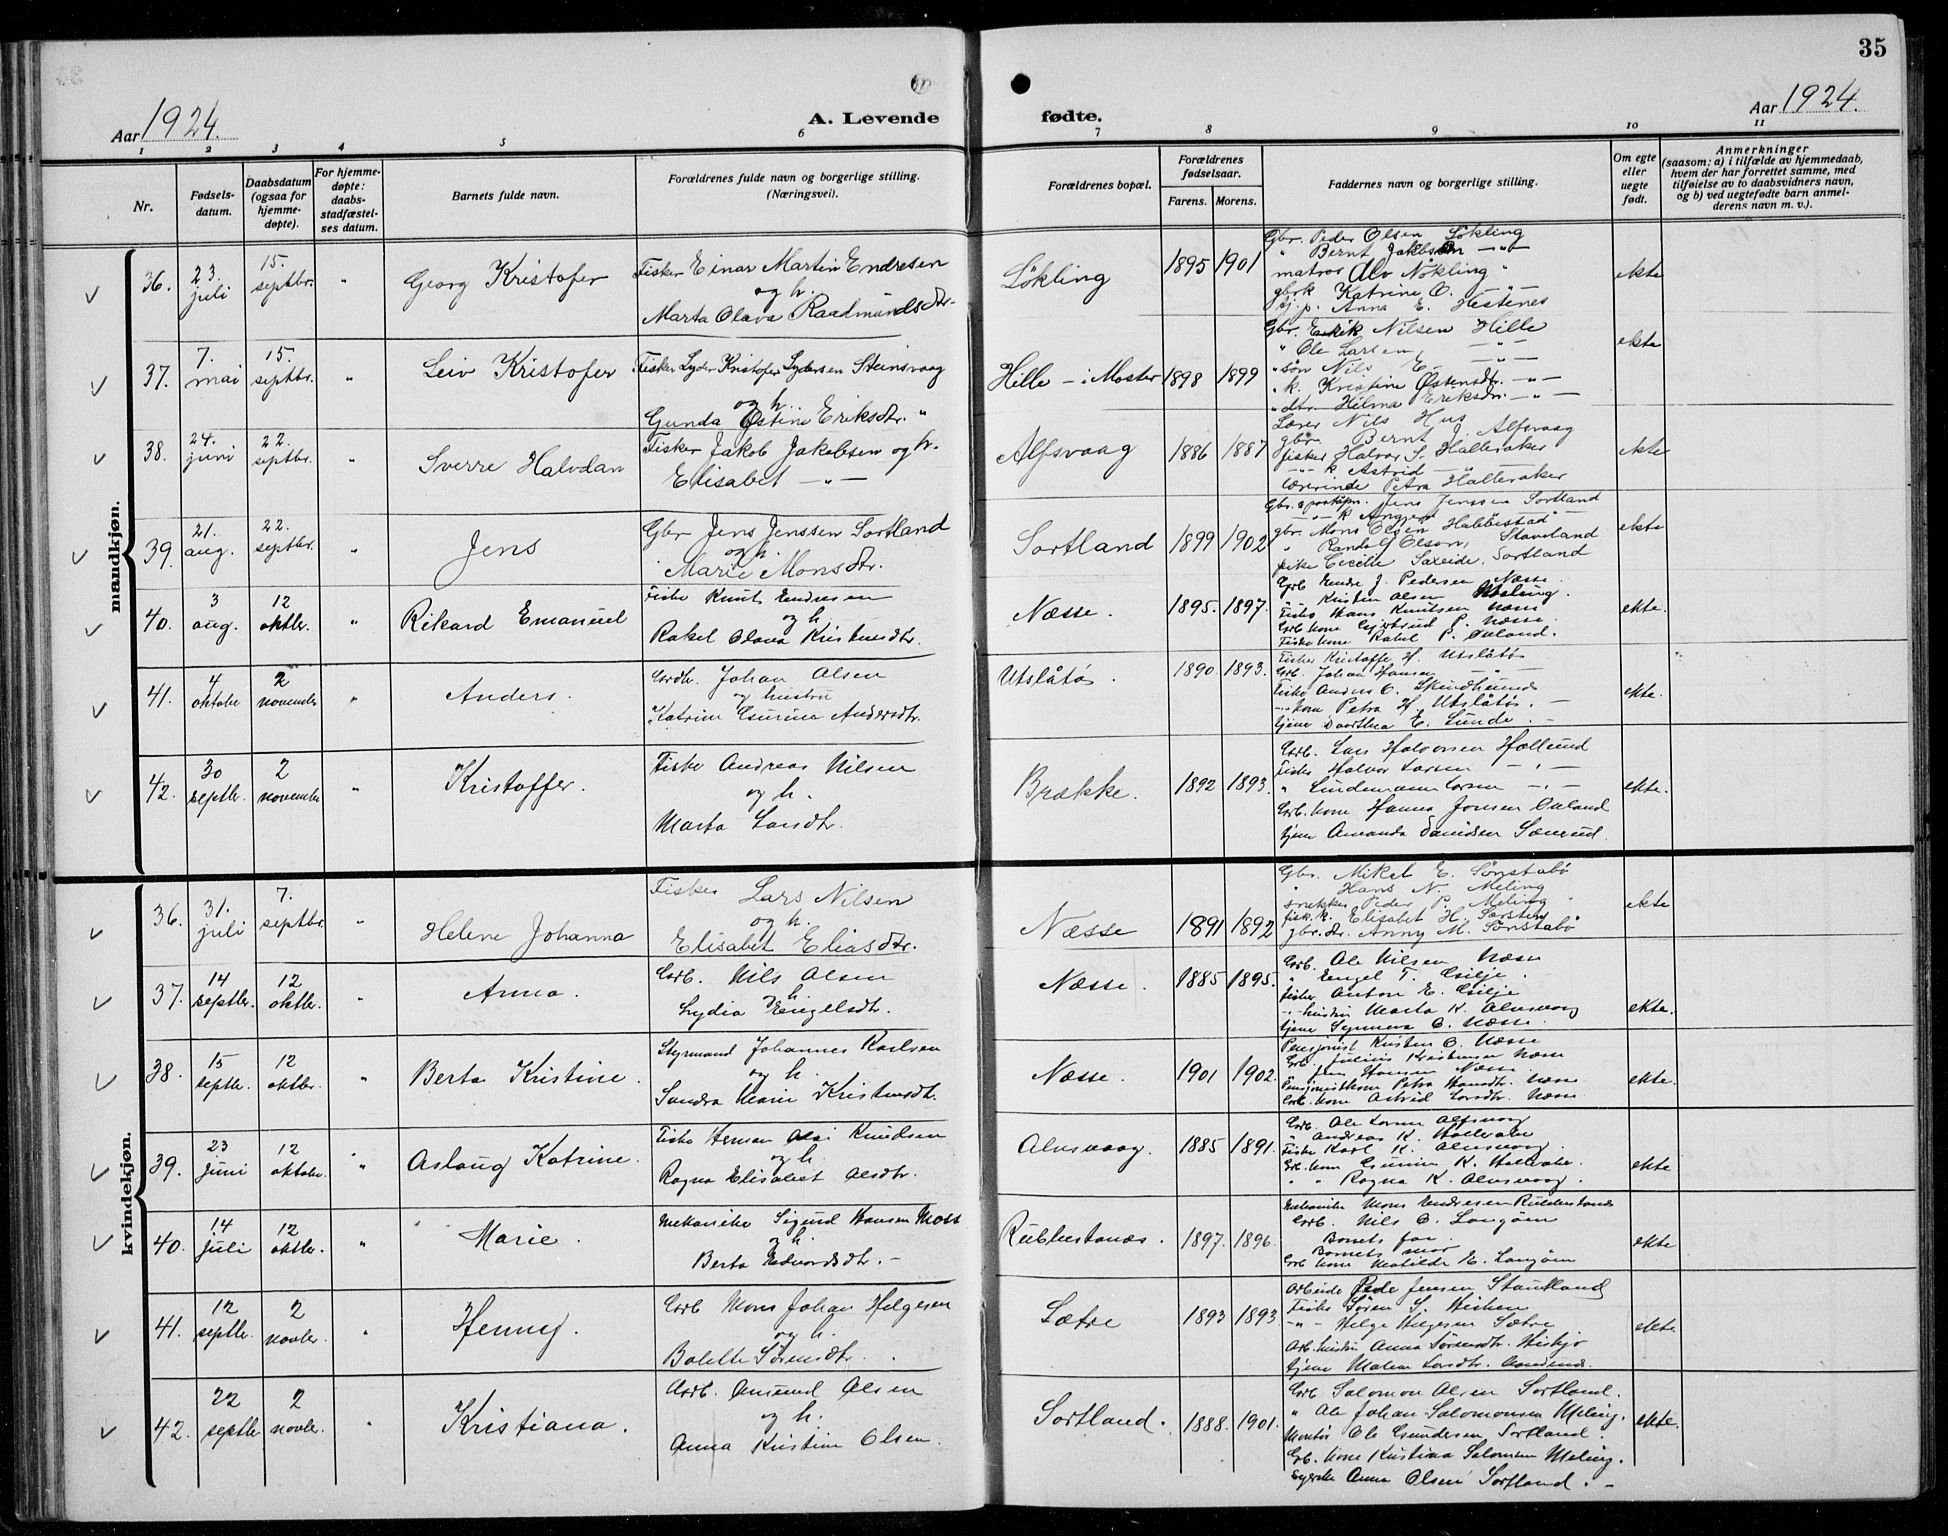 35
Aar 1924.
A. Levende
fødte.
Aar 1924.
1 2 3 4 5 6 7 8 9 10 11
Nr.
Fødsels-
datum.
Daabsdatum
(ogsaa for
hjemme-
døpte).
For hjemme-
døpte:
daabs-
stadfæstel-
ses datum.
Barnets fulde navn.
Forældrenes fulde navn og borgerlige stilling.
(Næringsvei).
Forældrenes bopæl.
Forældrenes
fødselsaar.
Farens. Morens.
Faddernes navn og borgerlige stilling.
Om egte
eller
uegte
født.
Anmerkninger
(saasom: a) i tilfælde av hjemmedaab,
hvem der har forrettet samme, med
tilføielse av to daabsvidners navn,
og b) ved uegtefødte barn anmel-
derens navn m. v.).
mandkjøn.
36. 23. juli 15. septbr. " Georg Kristofer
Fisker Einar Martin Endresen
og h.
Marta Olava Raadmundsdtr.
Løkling 1895 1901
Gbr. Peder Olsen Løkling
" Bernt Jakobsen -"-
matros Alv Nökling "
gbrk Katrine O. -"-
tj. p. Anna E. Hestenes
ekte
37. 7. mai 15. septbr. " Leiv Kristofer
Fisker Lyder Kristofer Lydersen Steinsvaag
og h.
Gunda Østine Eriksdtr. "
Hille - i Moster 1898 1899
Gbr. Erik Nilsen Hille
" Ole Larsen -"-
" søn Nils E. -"-
" k. Kristine Østensdtr. -"-
" dtr. Hilma Eriksdtr. -"-
ekte
38. 24. juni 22. septbr. " Sverre Halvdan
Fisker Jakob Jakobsen og h.
Elisabet -"-
Alfsvaag 1886 1887
Lærer Nils Hus
gbr. Bernt J. Alfsvaag
fisker Halvor S. Halleraker
-"- k Astrid -"-
lærerinde Petra Halleraker
ekte
39. 21. aug. 22. septbr. " Jens
Gbr Jens Jenssen Sortland
og h.
Marie Monsdtr.
Sortland 1899 1902
Gbr. & poståpn. Jens Jenssen Sortland
-"- k
gbr. Mons Olsen Habbestad
" Randolf Olson, Staveland
pike Cecilie Saxeide, Sortland
ekte
40. 3 aug. 12 oktbr. " Rikard Emanuel
Fisker Knut Endresen
og h.
Rakel Olava Kristensdtr.
Næsse. 1895. 1897.
Grb Endre J. Pedersen Næsse.
" Kristen Olsen Meling.
Fisker Hans Knutsen Næsse
Grb kone Gjertrud P. Næsse
Fisker kone Rakel P. Auland.
ekte.
41. 4 oktober 2 november " Anders.
Gårdbr. Johan Olsen
og hustru
Katrine Gurine Andersdtr.
Utslåtø. 1890. 1893.
Fisker Kristoffer H. Utslåtø
Grb. Johan Hansen
Fisker Anders O.
-"- kone Petra H. Utslåtø. -
tjener Dorthea E. Lunde. -
ekte.
42. 30 septbr. 2 november " Kristoffer.
Fisker Andreas Nilsen
og h.
Marta Larsdtr.
Brække. 1892 1893.
Grb. Lars Halvorsen Hollund
Fisker Halvor Larsen -"-
" Lindemann Larsen -"-
Grb. kone Hanna Jonsen Auland
tjener Amanda Davidsen
ekte.
kvindekjøn.
36. 31. juli 7. septbr. " Helene Johanna
Fisker Lars Nilsen
og h.
Elisabet Eliasdtr.
Næsse 1891 1892
Gbr. Mikal E. Sønstabö
" Hans N. Meling
snekker Peder P. Meling
fisk. k. Elisabet H.
gbr. dtr. Anny M. Sønstabö
ekte
37. 14 septbr. 12 oktbr. " Anna.
Grb. Nils Olsen
h.
Lydia Engelsdtr.
Næsse. 1885 1895.
Grb. Ole Nilsen Næsse
" Engel T. Gilje.
Fisker Anton E. Gilje
-"- hustru Marta K. Alvsvaag
tjener Synneva O. Næsse.
ekte.
38. 15 septbr. 12 oktbr. " Berta Kristine.
Styrmand Johannes Karlsen
og h.
Sandra Marie Kristensdtr.
Næsse. 1901 1902.
Pensjonist Kristen O. Næsse
Grb. Julius Kristensen Næsse
" Hansen Næsse
Pensjonistkone Petra Hansdtr. Næsse
Grb. kone Astrid Larsdtr. Næsse
ekte.
39. 23 juni 12 oktober. " Aslaug Katrine.
Fisker Herman Olai Knudsen
og h.
Ragna Elisabet Olsdtr.
Alvsvaag. 1885 1891.
Grb. Ole Larsen Alfsvaag
" Andreas K.
Fisker Karl K. Alvsvaag.
Grb. kone Gurine K.
" " Ragna K. Alvsvaag.
ekte
40. 14 juli 12 oktbr. " Marie.
Mekaniker Sigurd Hansen Moss
og h.
Berta Edvardsdtr. -
Rubbestanes. 1897. 1896.
Mekaniker Mons Endresen Rubbestanes
Grb. Nils O. Langøen
Barnets far.
Barnets mor
Grb kone Matilde E. Langøen
ekte
41. 12 septbr. 2 novbr. " Henny.
Grb Mons Johan Helgesen
og h.
Bolette Sørensdtr.
Sætre 1893 1893
Arbeider Peder Jensen Stautland
Fisker Søren S.
-"- Helge Helgesen Sætre
Arb. hustru Anna Sørensdtr.
tjener Malene Larsdtr.
ekte.
42. 22 septbr. 2 novbr. " Kristiana.
Arb. Amund Olsen
og h.
Anna Kristine Olsen.
Sortland. 1888. 1901.
Grb Salomon Olsen Sortland.
" Ole Johan Salomonsen Meling.
Montør Ole Gundersen Sortland.
Grb. kone Kristina Salomonsen Meling.
Anna Olsen Sortland. -
ekte.